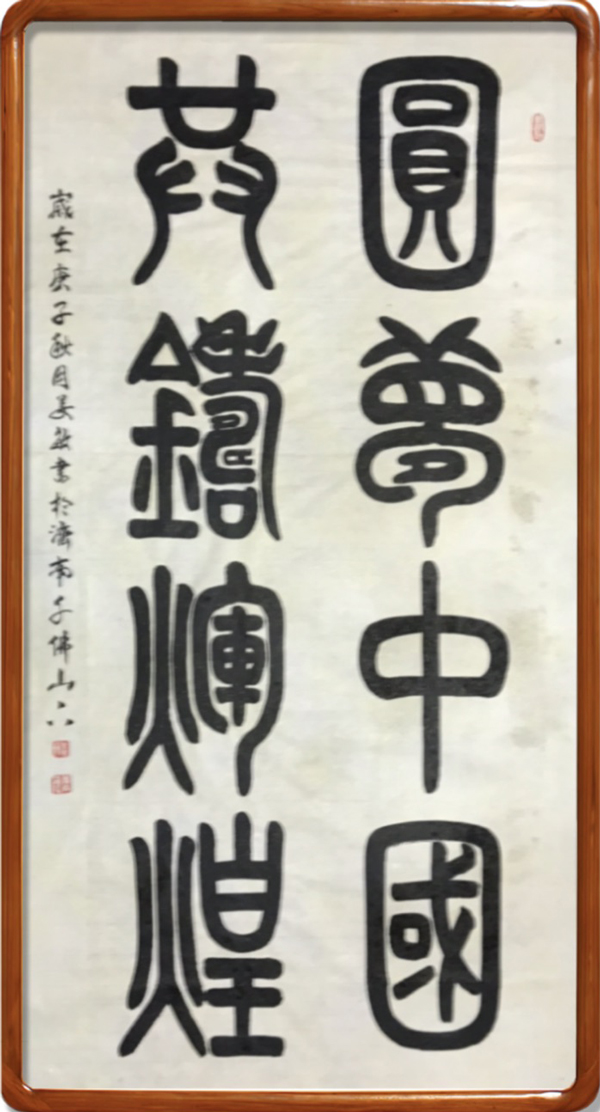 圓夢中國
共鑄輝煌
歲在庚子秋月姜
書於濟南千佛山下